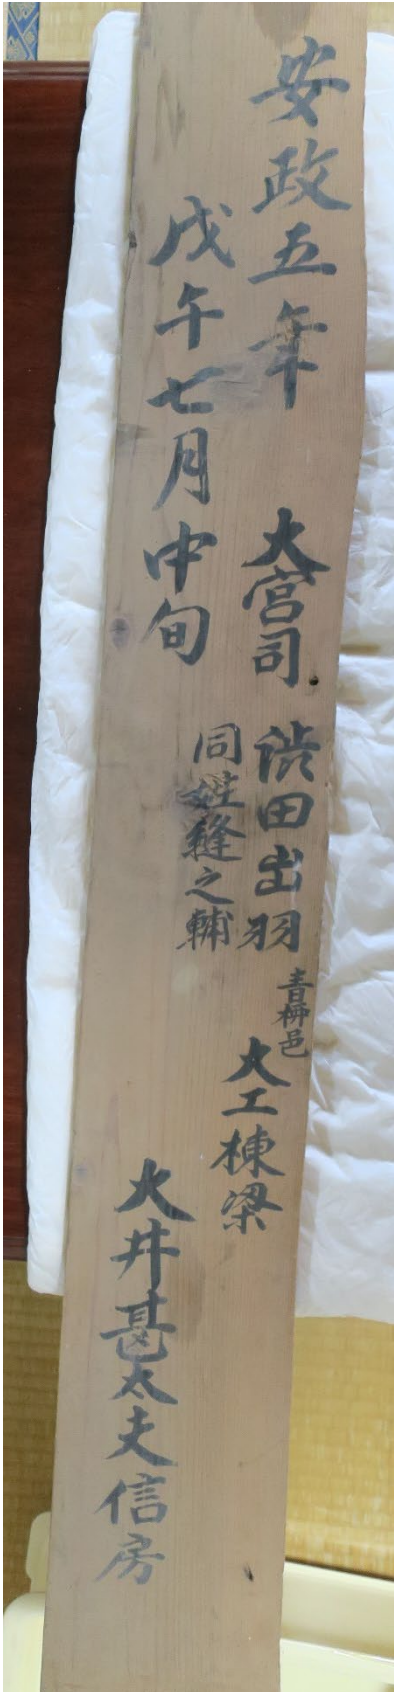 安政五年
戊午七月中旬
大宮司 渋田出羽
同姓縫之輔
青柳邑
大工棟梁
大井甚太夫信房